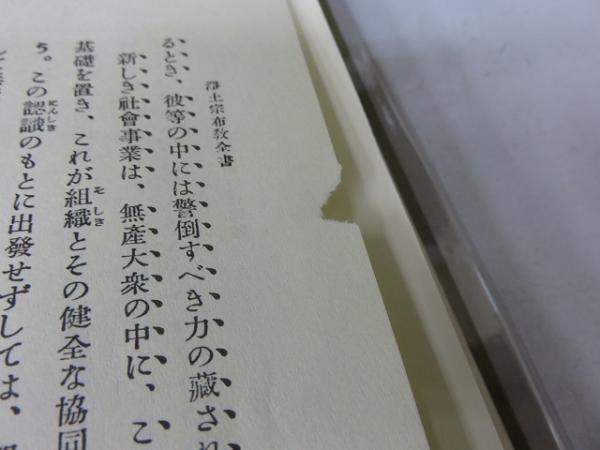 浄土宗布教全書
るとき、彼等の中には警倒すべき力の藏され
新しき社會事業は、無産大衆の中に、こ
基礎を置き、これが組織とその健全な協同
そしき
う。この認識のもとに出發せずしては、
にんしき